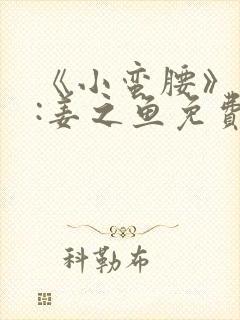 《小蛮腰》
:姜之鱼免费
科勒布